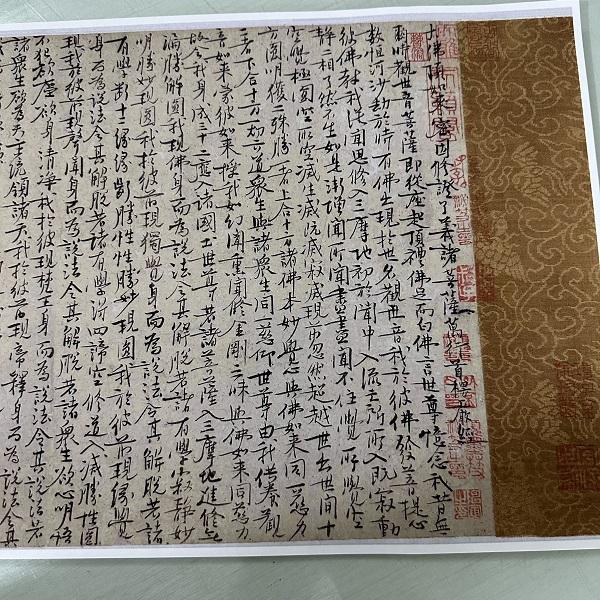 大佛頂如來密因修證了義諸菩薩萬行首楞嚴經
爾時觀世音菩薩即從座起頂禮佛足而白佛言世尊憶念我昔無
數恒河沙劫於時有佛出現於世名觀世音我於彼佛發菩提心
彼佛教我從聞思修入三摩地初於聞中入流亡所所入既寂動
靜二相了然不生如是漸增聞所聞盡盡聞不住覺所覺空
空覺極圓空所空滅生滅既滅寂滅現前忽然超越世出世間十
方圓明獲二殊勝一者上合十方諸佛本妙覺心與佛如來同一慈力
二者下合十方一切六道衆生與諸衆生同一悲仰世尊由我供養觀
音如來蒙彼如來授我如幻聞熏聞修金剛三昧與佛如來同慈力
故令我身成三十二應入諸國土世尊若諸菩薩入三摩地進修無
漏勝解現圓我現佛身而為說法令其解脫若諸有學寂靜妙
明勝妙現圓我於彼前現獨覺身而為說法令其解脫若諸
有學斷十二緣緣斷勝性勝妙現圓我於彼前現緣覺
身而為說法令其解脫若諸有學得四諦空修道入滅勝性現圓
我於彼前現聲聞身而為說法令其解脫若諸衆生欲心明悟
不犯欲塵欲身清淨我於彼前現梵王身而為說法令其解脫若
諸衆生欲為天主統領諸天我於彼前現帝釋身而為說法令其